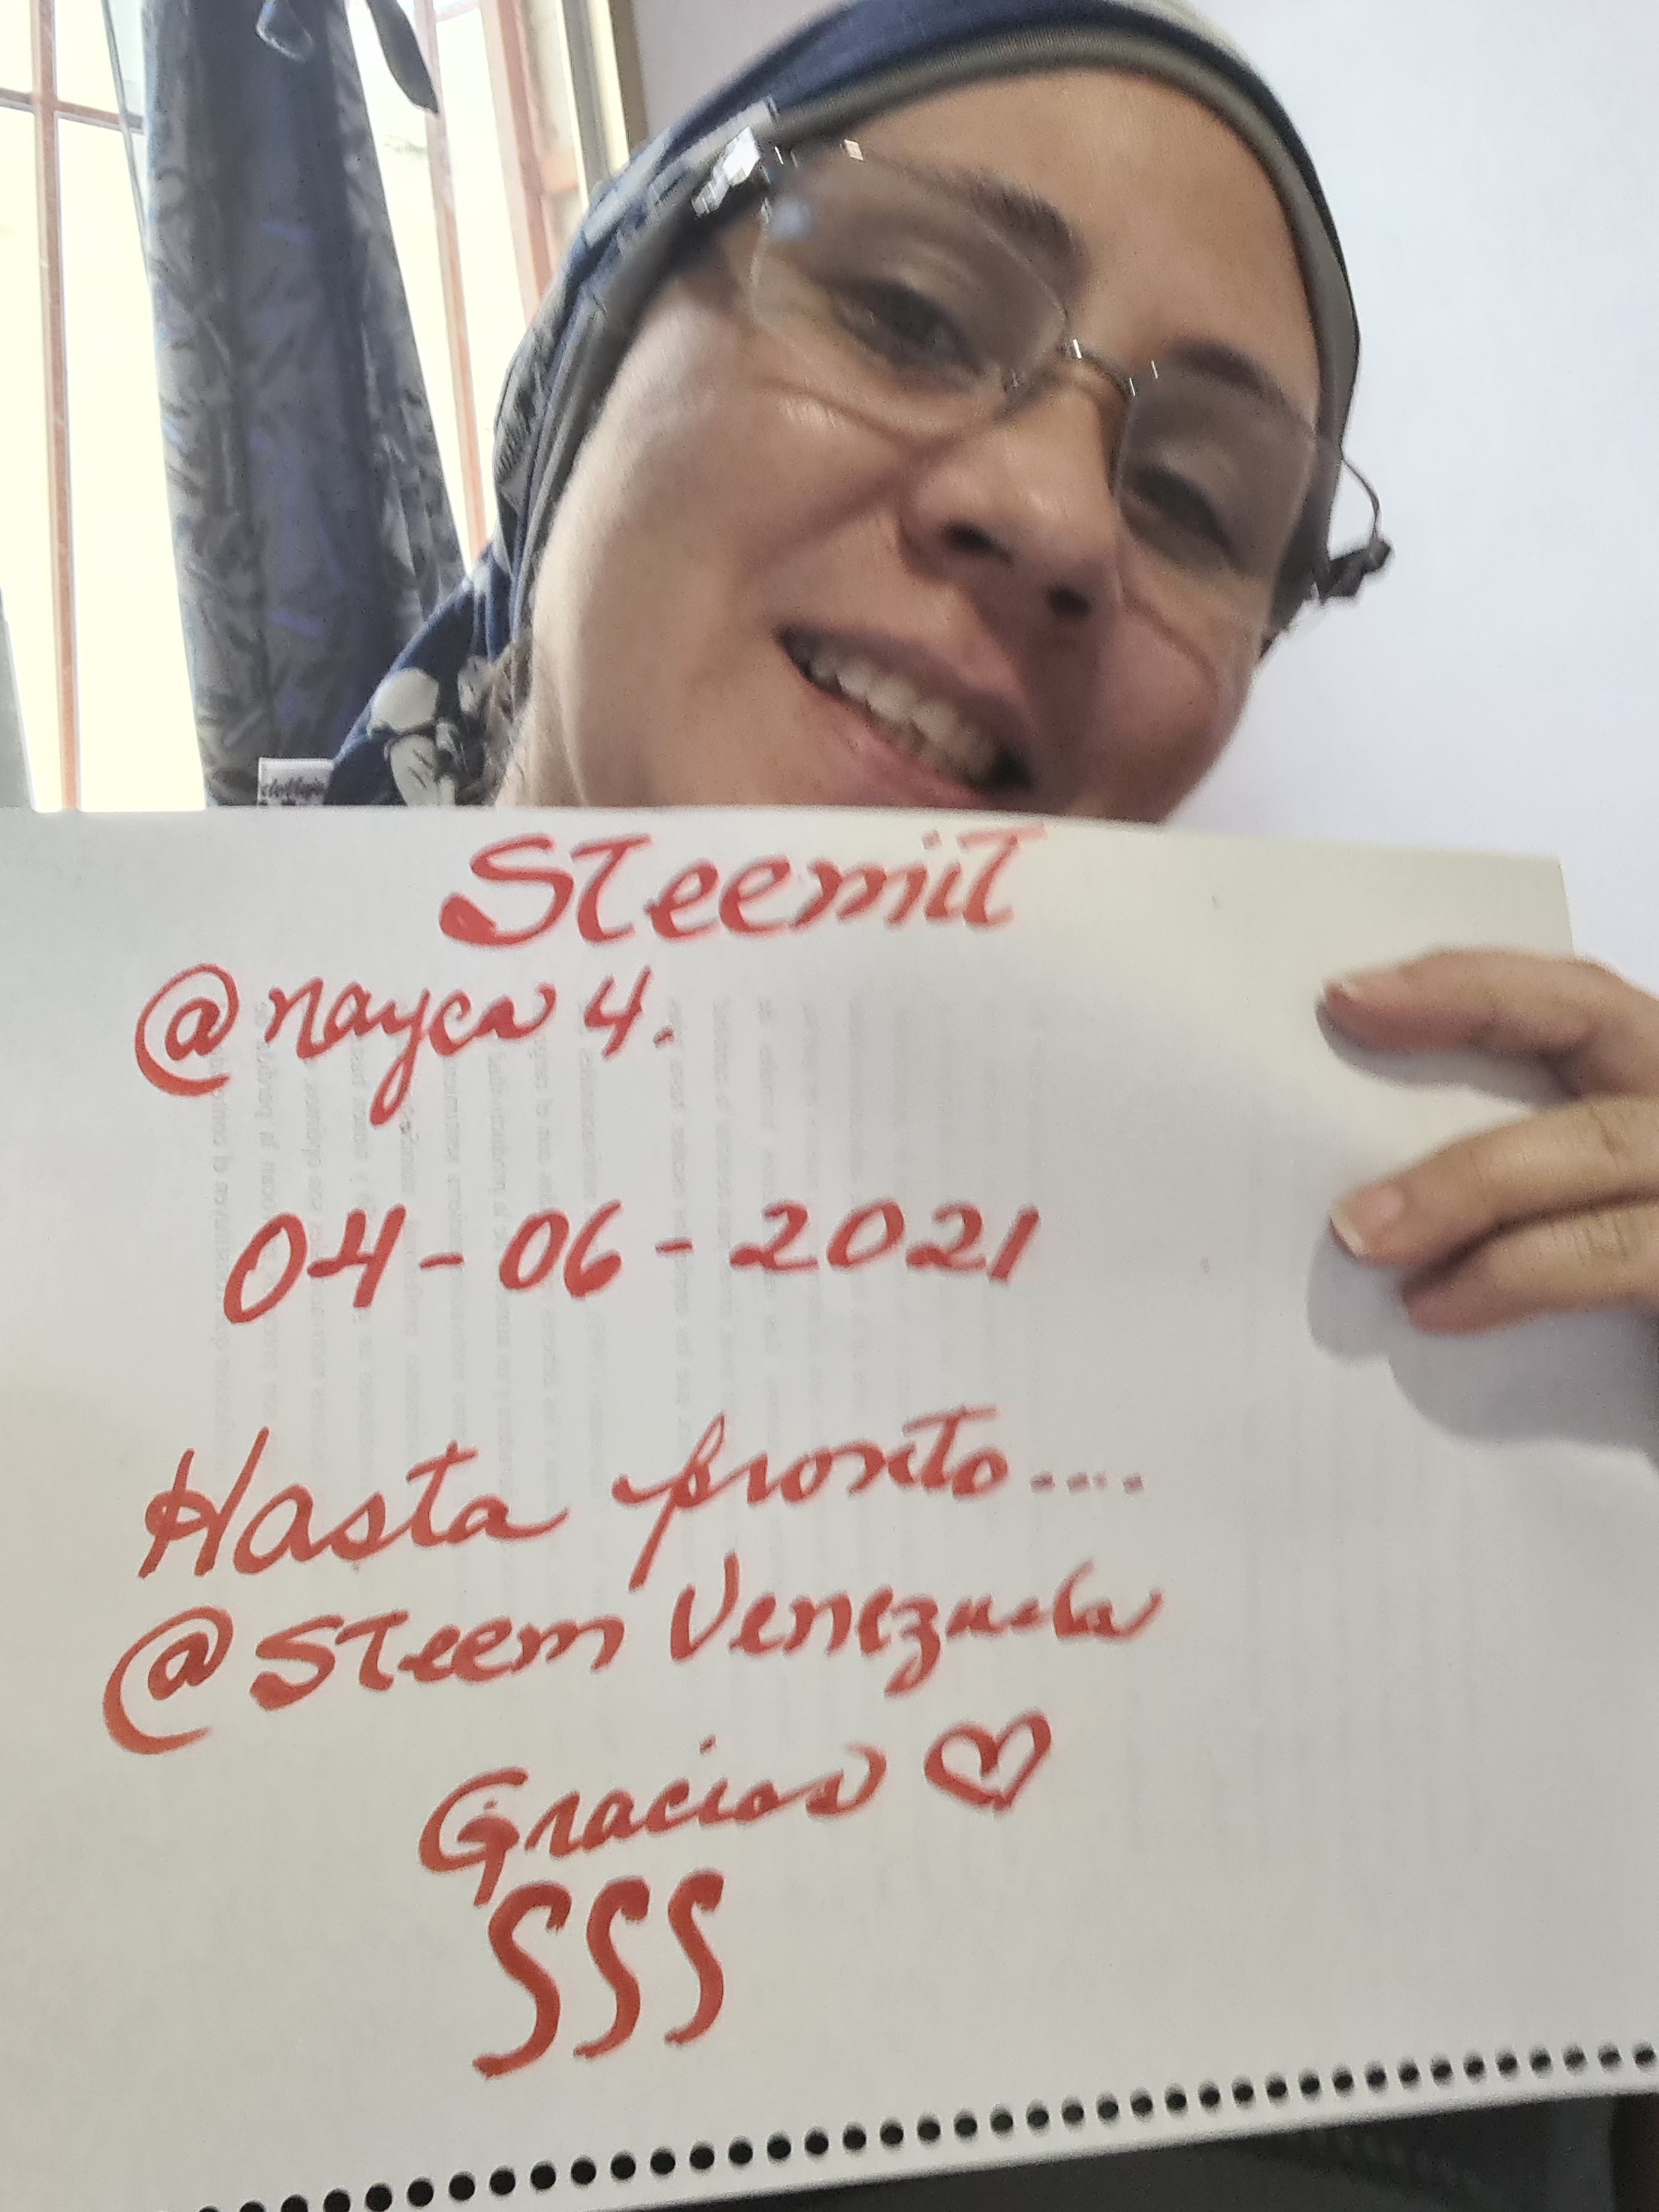 Steemit
@nayca4.
04-06-2021
Hasta pronto....
@Steem Venezuela
Gracias ♡
SSS